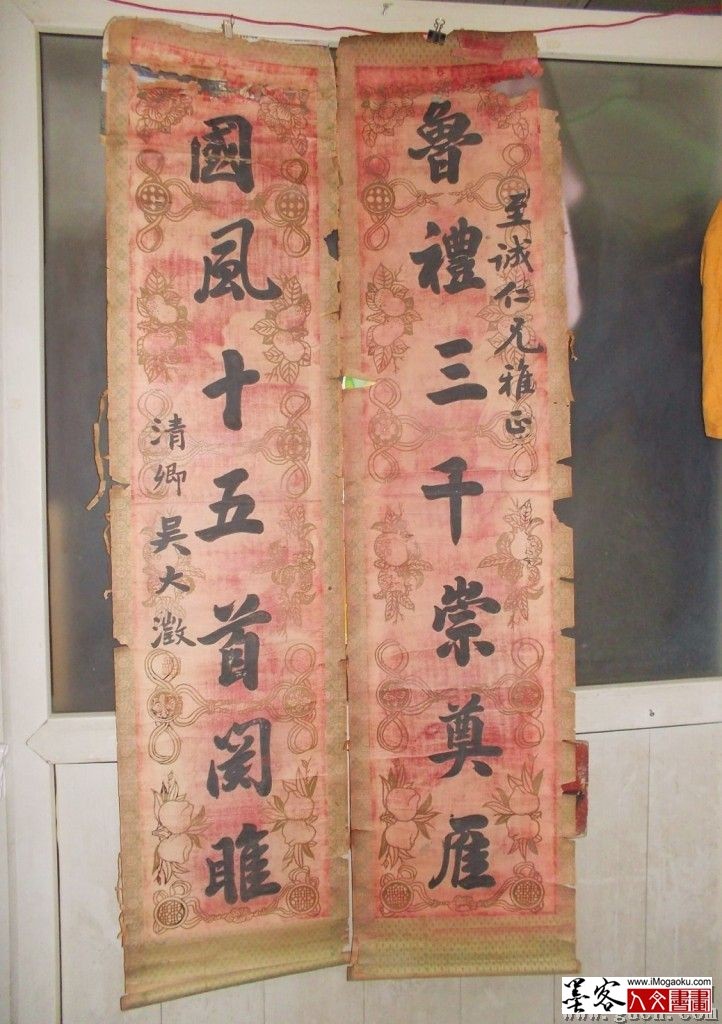 魯禮三千崇奠雁
至誠仁兄雅正
國風十五首関雎
清卿吴大澂
墨客 www.iMogaoku.com
人文書畫